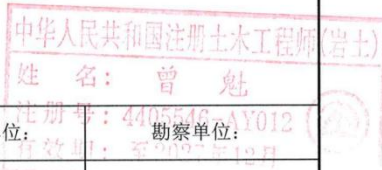 中华人民共和国注册土木工程师(岩土)
姓 名: 曾 魁
注册号: 4405546-AY012
位: 勘察单位:
有效期: 至2027年12月